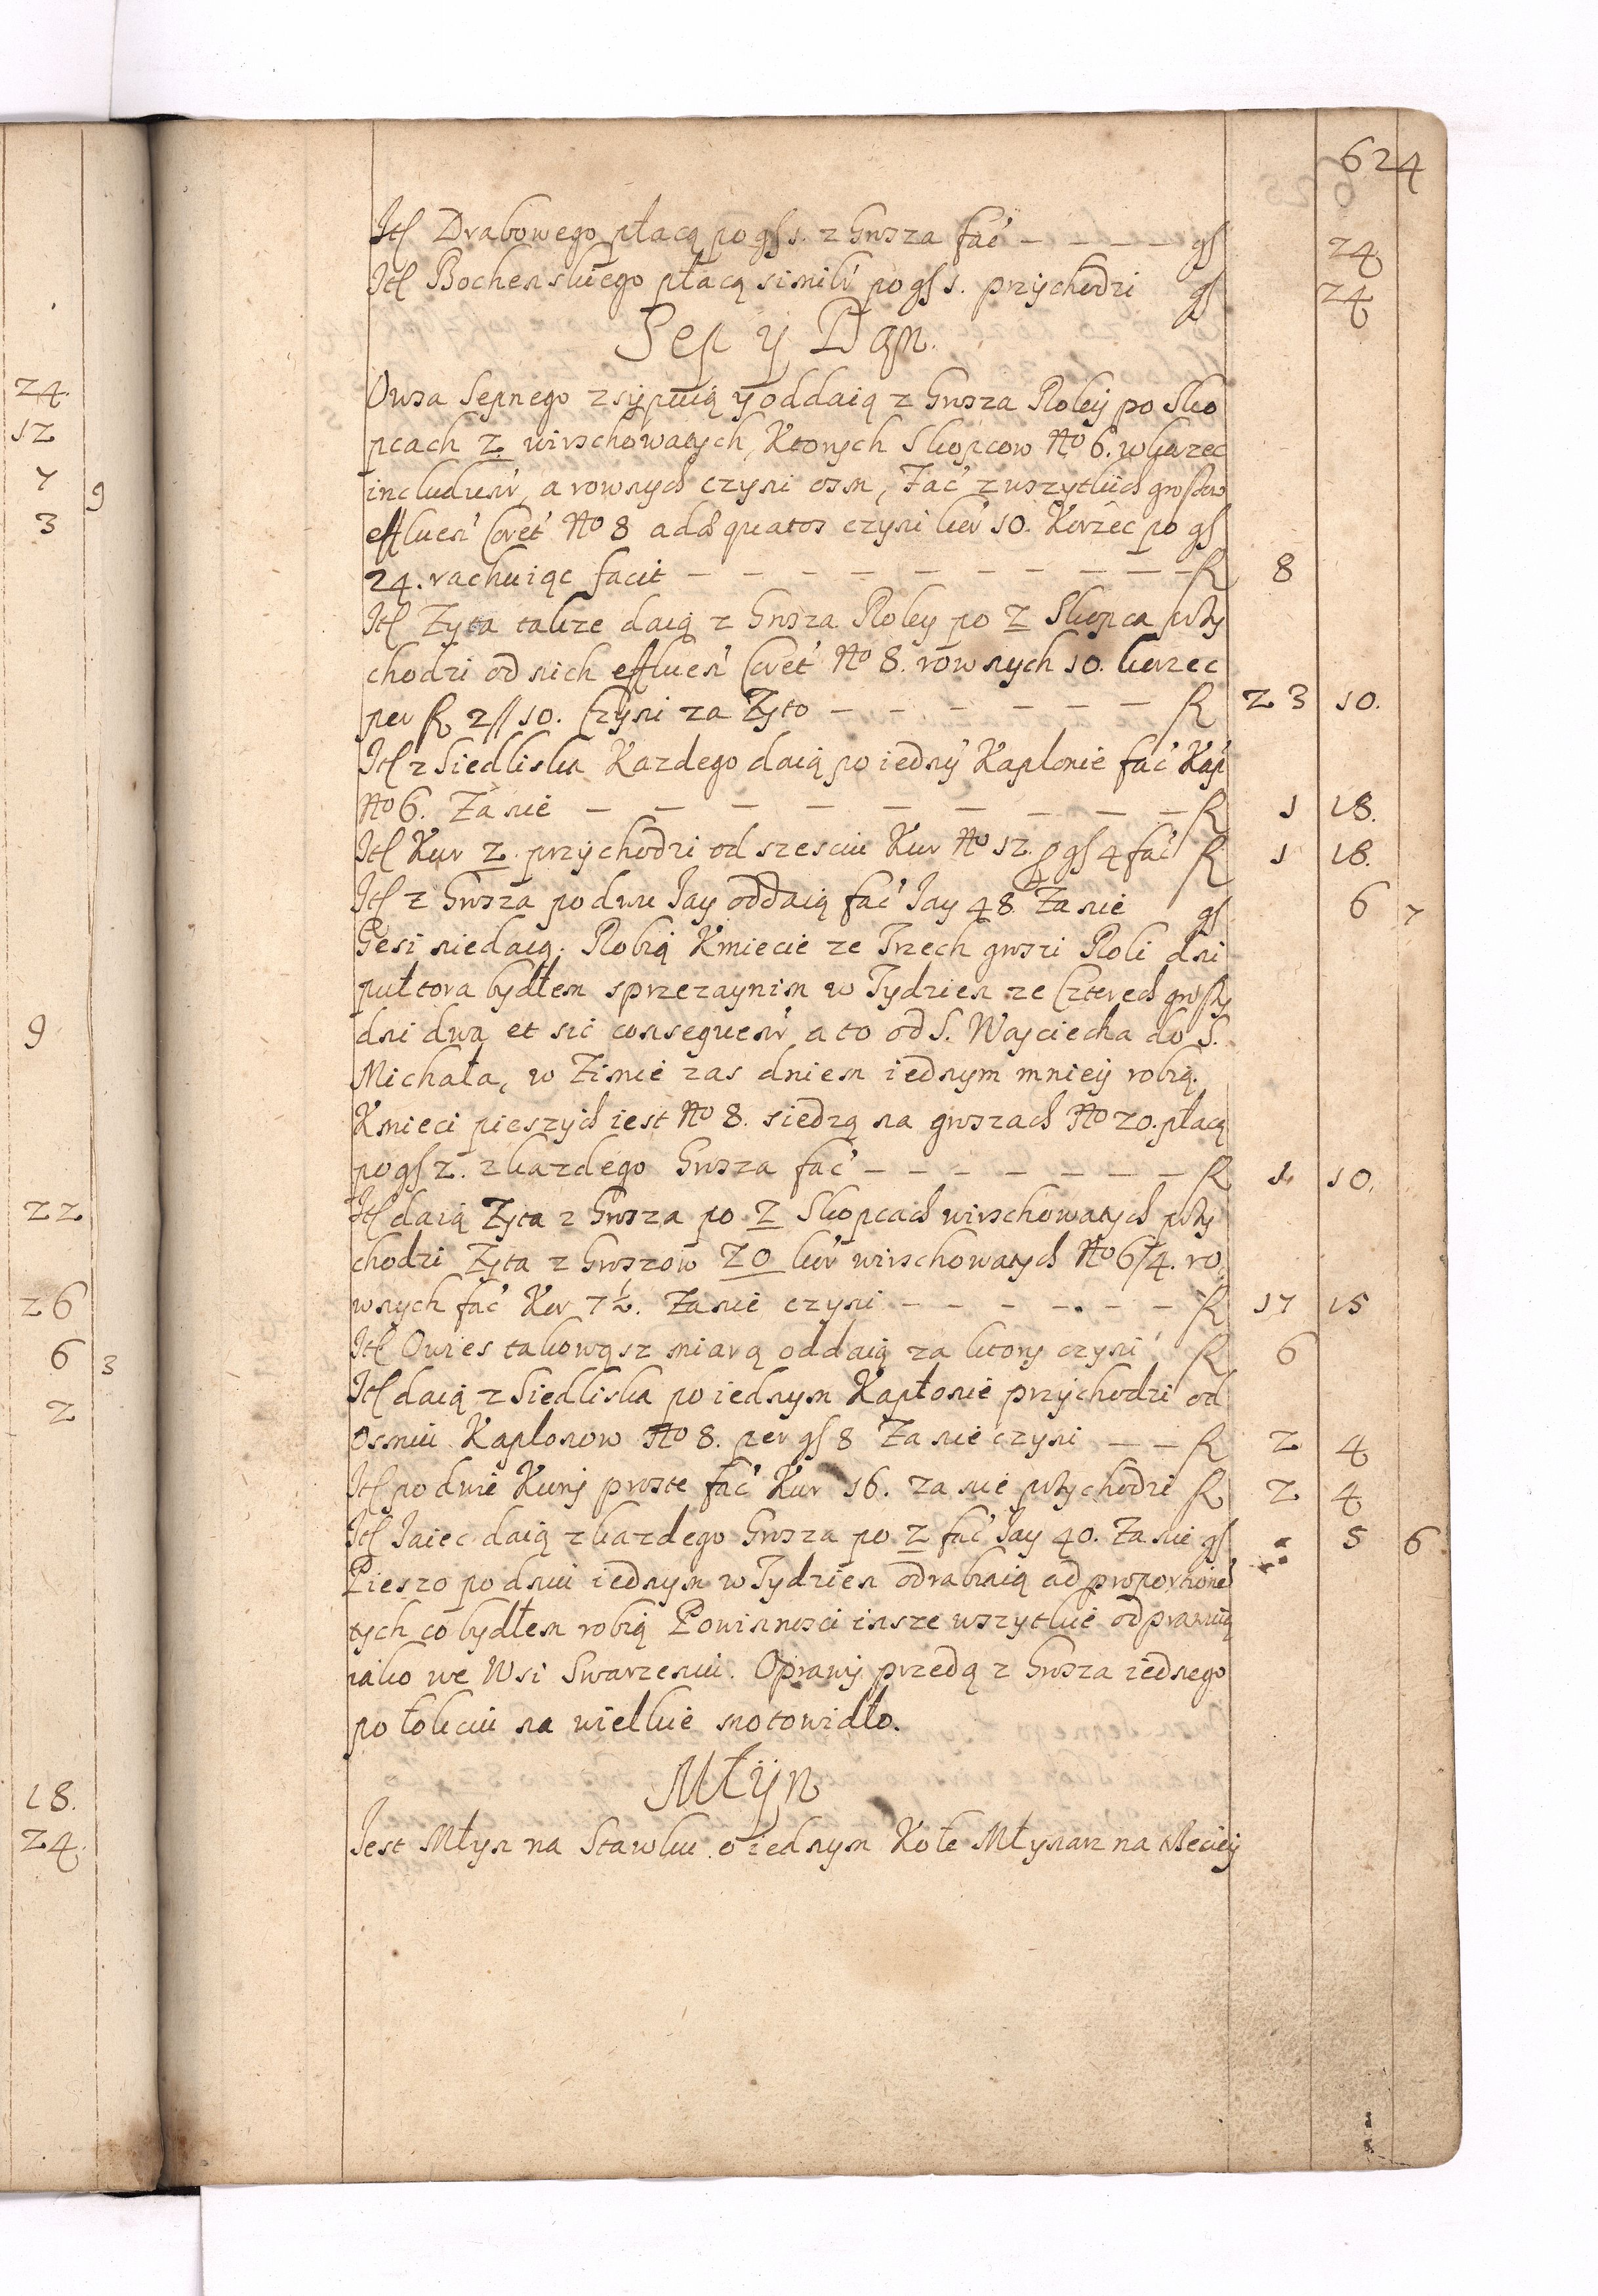 624
Itl Drabowego płacą po gſ 1. z Gwsza fac̄ — — — — gſ 24
Itl Bochenskiego płacą simil̄r po gſ 1. przychodzi gſ 24
Sep y Dan.
Owsa Sepnego zsypuią y oddaią z Gwsza Roley po Sko
pcach 2 wirschowatych, Ktorych Skopcow No 6. w korzec
includun̄r, a rownych czyni osm, Fac̄ z wszytkich gwsztow
effluen̄ Coret̄ No 8 adæquatos czyni kor̄ 10. Korzec po gſ
24. rachuiąc facit — — — — — — — — — R 8
Itl Zyta takze daią z Gwsza Roley po 2 Skopca przy
chodzi od nich effluen̄ Coret̄ No 8. rownych 10. korzec
per R 2// 10. Czyni za Zyto — — — — — — R 23 10.
Itl z Siedliska Kazdego daią po iednȳ Kaplonie fac̄ Kap̄
No 6. Za nie — — — — — — — — R 1 18.
Itl Kur 2. przychodzi od szesciu Kur No 12. p gſ 4 fac̄ R 1 18.
Itl z Gwsza po dwu Jay oddaią fac̄ Jay 48. Za nie gſ 6 7
Gesi niedaią. Robią Kmiecie ze Trzech gwszi Roli dni
pułtora bydłem sprzezaynim w Tydzien ze Czterech gwszty
dni dwa et sic consequen̄r a to od S. Wayciecha do S.
Michała, w Zimie zas dniem iednym mniey robią.
Kmieci pieszych iest No 8. siedzą na gwszach No 20. płacą
po gſ 2. z kazdego Gwsza fac̄ — — — — — — — R 1. 10.
Itl daią Zyta z Gwsza po 2 Skopcach wirschowatych przy
chodzi Zyta z Gwszow 20 kor̄ wirschowatych No 6/4. ro
wnych fac̄ Kor 7½. Za nie czyni — — — — — — R 17 15
Itl Owies takowąsz miarą oddaią za ktory czyni R 6
Itl daią z Siedliska po iednym Kapłonie przychodzi od
osmiu Kaplonow No 8. per gſ 8 Za nie czyni — — R 2 4
Itl po dwie Kury proste fac̄ Kur 16. za nie przychodzi R 2 4
Itl Jaiec daią z kazdego Gwsza po 2 fac̄ Jay 40. Za nie gſ 5 6
Pieszo po dniu iednym w Tydzien odrabiaią ad proportioned
tych co bydłem robią Powinnosci insze wszytkie odprawuią
iako we Wsi Swarzeniu. Oprawy przedą z Gwsza iednego
po łokciu na wielkie motowidło.
Młyn
Iest Młyn na Stawku o iednym Kole Młynarz na trzeciey
24.
12
7 9
3
9
22
26
6 3
2
18.
24.